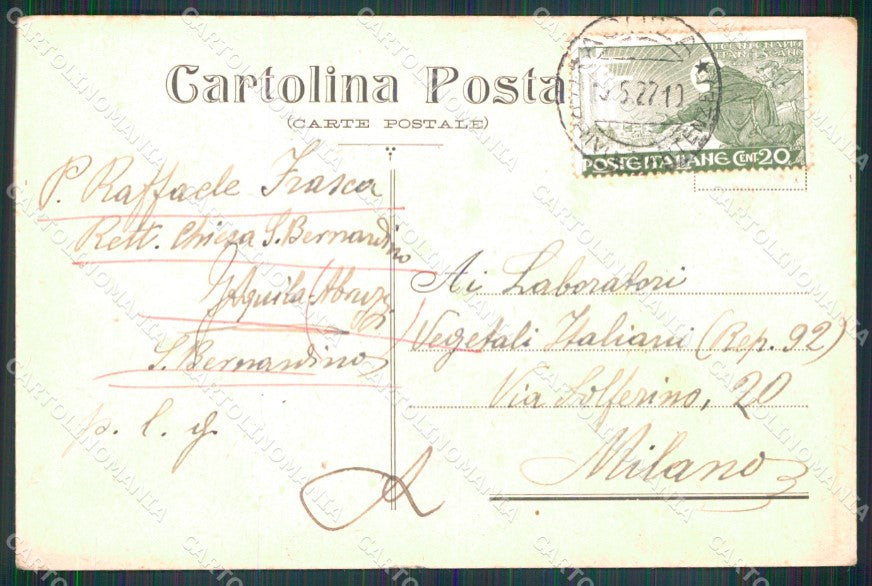 Cartolina Posta
(CARTE POSTALE)
POSTE ITALIANE CENT. 20
5.27.10
P. Raffaele Frasca
Rett. Chiesa S. Bernardino
Aquila (Abruzzi)
S. Bernardino
p. l. g.
Ai Laboratori
Vegetali Italiani (Rep. 92)
Via Solferino, 20
Milano
CARTOLINOMANIA